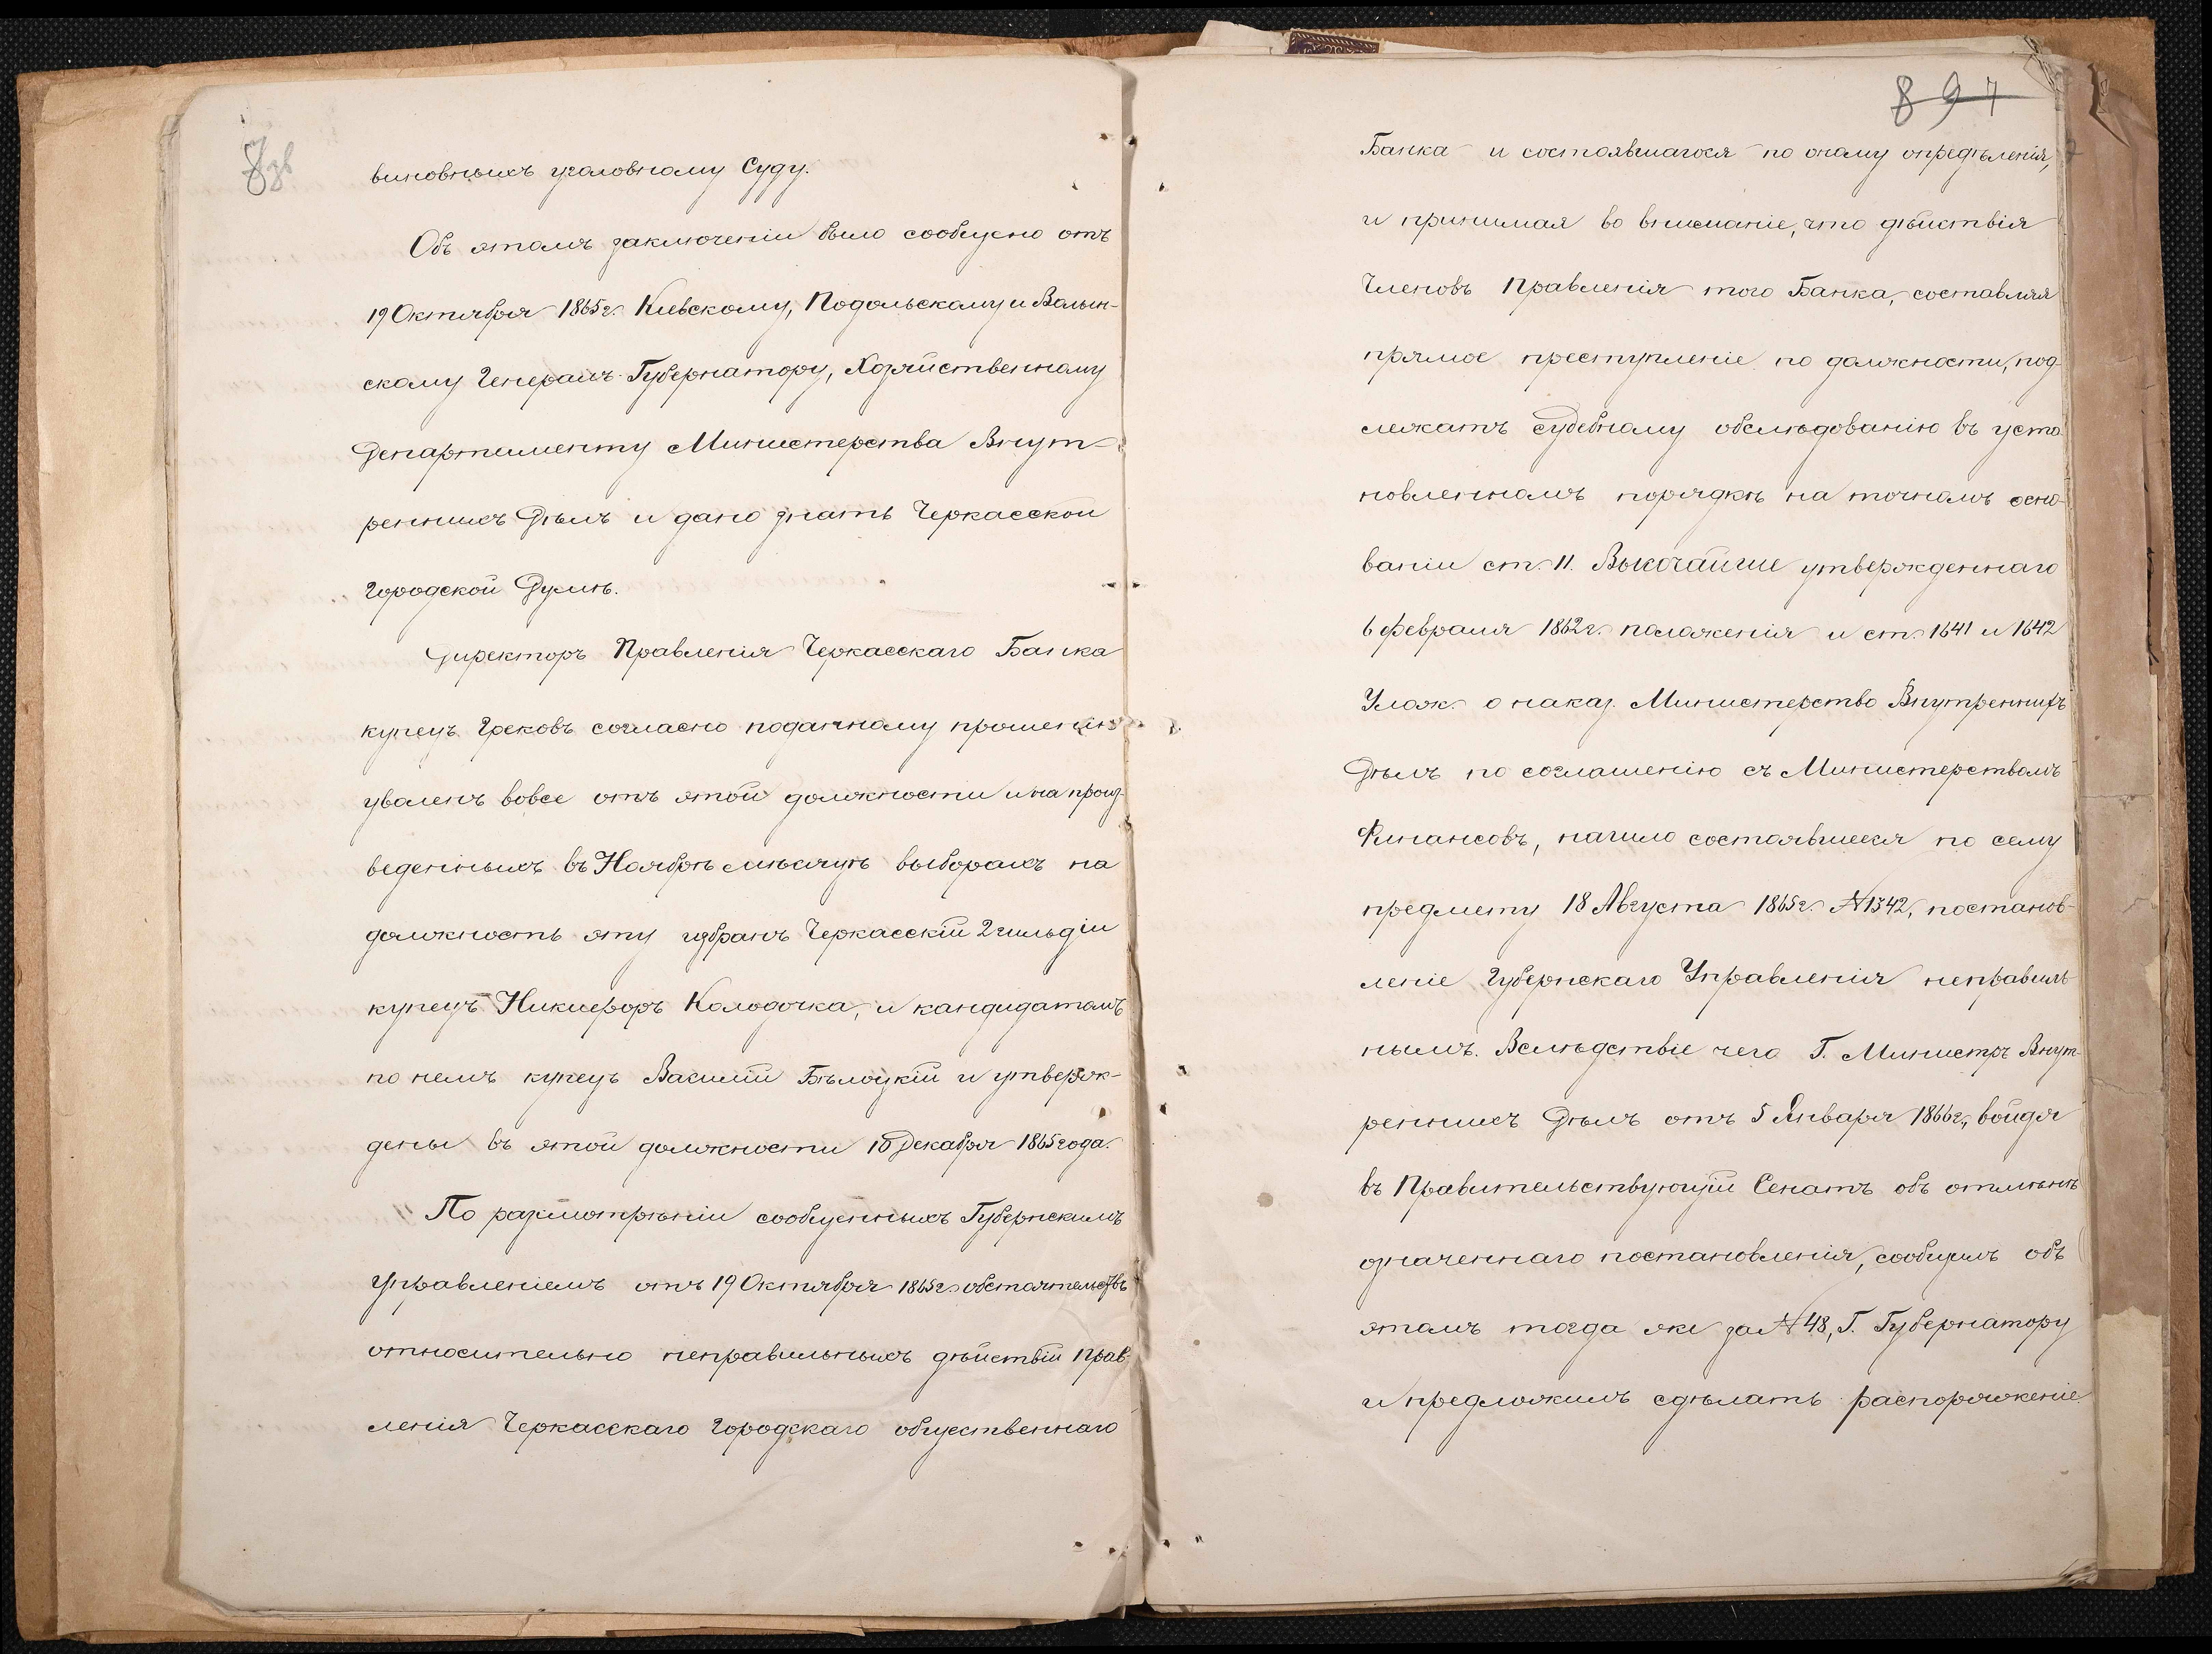 виновныхъ уголовному Суду.
Объ этомъ заключеніи было сообщено отъ
19 Октября 1865 г. Кіевскому, Подольскому и Волын-
скому Генералъ-Губернатору, Хозяйственному
Департаменту Министерства Внут-
реннихъ Дѣлъ и дано знать Черкасской
Городской Думѣ.
Директоръ Правленія Черкасскаго Банка
купецъ Грековъ согласно поданному прошенію
уволенъ вовсе отъ этой должности и на произ-
веденныхъ въ Ноябрѣ мѣсяцѣ выборахъ на
должность эту избранъ Черкасскій 2 гильдіи
купецъ Никифоръ Колодочка, и кандидатомъ
по немъ купецъ Василій Бѣлоцкій и утверж-
дены въ этой должности 10 Декабря 1865 года.
По разсмотрѣніи сообщенныхъ Губернскимъ
Управленіемъ отъ 19 Октября 1865 г. обстоятельствъ
относительно неправильныхъ дѣйствій Прав-
ленія Черкасскаго Городскаго общественнаго
8 9 7
Банка и состоявшагося по оному опредѣленія,
и принимая во вниманіе, что дѣйствія
Членовъ Правленія того Банка, составляя
прямое преступленіе по должности, под-
лежатъ судебному обслѣдованію въ уста-
новленномъ порядкѣ на точномъ осно-
ваніи ст. 11. Высочайше утвержденнаго
6 Февраля 1862 г. положенія и ст. 1641 и 1642
Улож. о наказ. Министерство Внутреннихъ
Дѣлъ по соглашенію съ Министерствомъ
Финансовъ, нашло состоявшееся по сему
предмету 18 Августа 1865 г. № 1342, постанов-
леніе Губернскаго Управленія неправиль-
нымъ. Вслѣдствіе чего Г. Министръ Внут-
реннихъ Дѣлъ отъ 5 Января 1866 г., войдя
въ Правительствующій Сенатъ объ отмѣнѣ
означеннаго постановленія, сообщилъ объ
этомъ тогда же за № 48, Г. Губернатору
и предложилъ сдѣлать распоряженіе